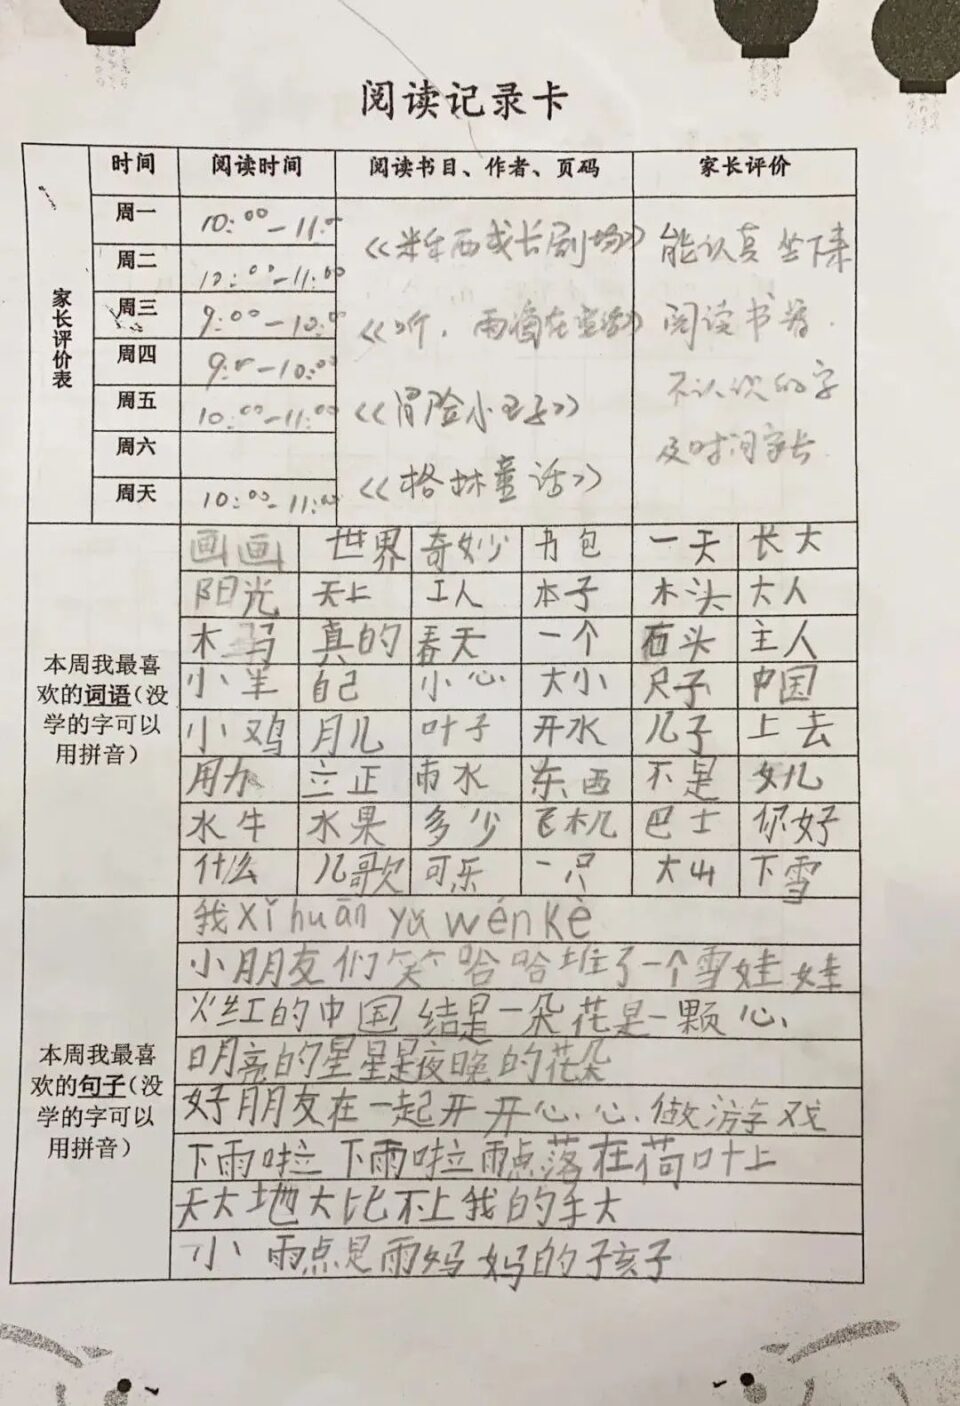 阅读记录卡
时间 阅读时间 阅读书目、作者、页码 家长评价
家长评价表
周一 10:00-11:
周二 10:00-11:00
周三 9:00-10:0
周四 9:0-10:00
周五 10:00-11:00
周六
周天 10:00-11:00
《米牟西成长剧场》
《听,雨滴在
《冒险小王子》
《格林童话》
能认真坐下来
阅读书籍.
不认识的字
及时问家长
本周我最喜欢的词语(没学的字可以用拼音)
画画 世界 奇妙 书包 一天 长大
阳光 天上 工人 本子 木头 大人
木马 真的 春天 一个 石头 主人
小羊 自己 小心 大小 尺子 中国
小鸡 月儿 叶子 开水 儿子 上去
用力 立正 雨水 东西 不是 女儿
水牛 水果 多少 飞机 巴士 你好
什么 儿歌 可乐 一只 大山 下雪
本周我最喜欢的句子(没学的字可以用拼音)
我xǐ huān yǔ wén kè
小朋友们笑哈哈堆了一个雪娃娃
火红的中国结是一朵花是一颗心、
明亮的星星是夜晚的花朵
好朋友在一起开开心心做游戏
下雨啦下雨啦雨点落在荷叶上
天大地大比不上我的手大
小雨点是雨妈妈的子孩子